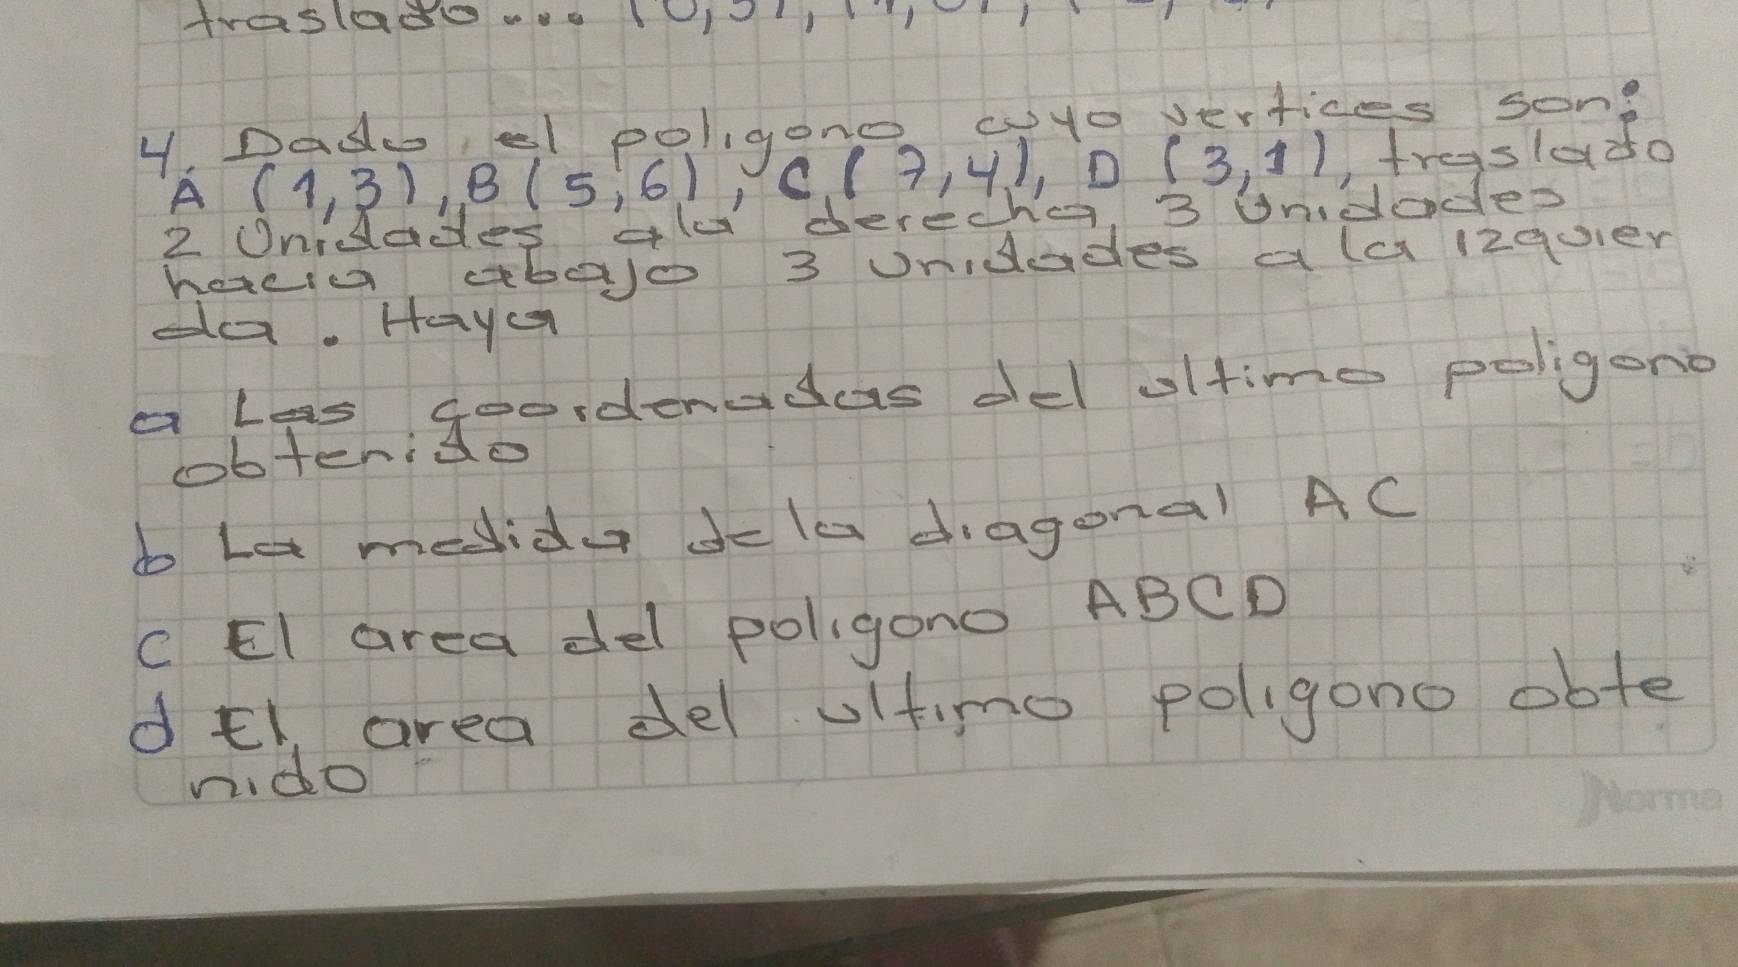 traslado...
4. Dado el poligono cuyo vertices son:
A (1,3), B(5,6), C(7,4), D (3,1), traslado
2 Unidades ala derecha, 3 Unidades
hacia abajo 3 unidades a la izquier
da. Haya
a Las coordenadas del ultimo poligono
obtenido
b La medida dela diagonal AC
c El area del poligono ABCD
d El area del ultimo poligono obte
nido
Norma